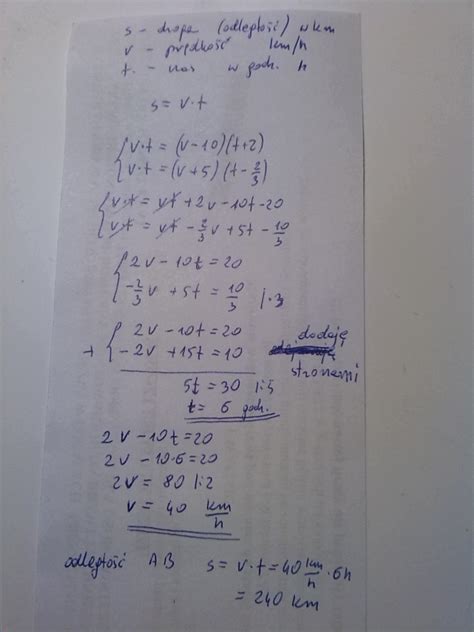 s - droga (odległość) w km
v - prędkość km/h
t - czas w godz. h
s = v·t
{v·t = (v-10)(t+2)
{v·t = (v+5)(t-2/3)
{v·t = vt + 2v - 10t - 20
{vt = vt - 2/3 v + 5t - 10/3
{2v - 10t = 20
{-2/3 v + 5t = 10/3 |·3
+ {2v - 10t = 20 dodaję
{-2v + 15t = 10 stronami
5t = 30 |:5
t = 6 godz.
2v - 10t = 20
2v - 10·6 = 20
2v = 80 |:2
v = 40 km/h
odległość AB s = v·t = 40 km/h · 6h
= 240 km